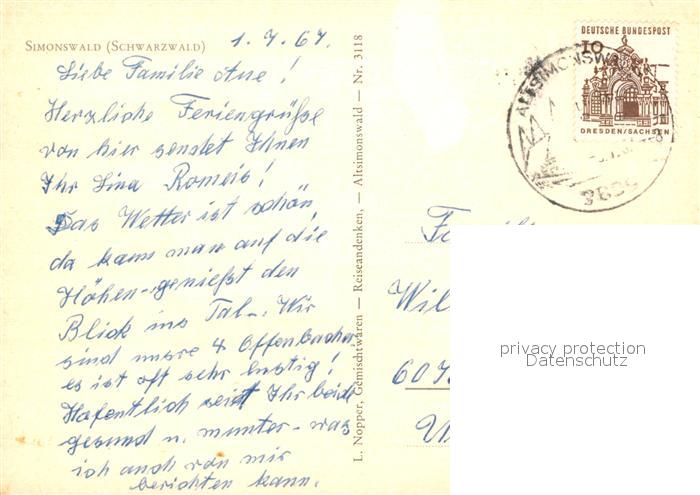 SIMONSWALD (SCHWARZWALD)
1.7.67.
Liebe Familie Aue!
Herzliche Feriengrüße
von hier sendet Ihnen
Ihr Lina Romeis!
Das Wetter ist schön,
da kann man auf die
Höhen-genießt den
Blick ins Tal-. Wir
sind unsre 4 Offenbacher,
es ist oft sehr lustig!
Hofentlich seid Ihr beide
gesund u. munter-was
ich auch von mir
berichten kann.
L. Nopper, Gemischtwaren — Reiseandenken, — Altsimonswald — Nr. 3118
DEUTSCHE BUNDESPOST
10
DRESDEN/SACHSEN
ALTSIMONSWALD
Fa
Wil
607
privacy protection
Datenschutz